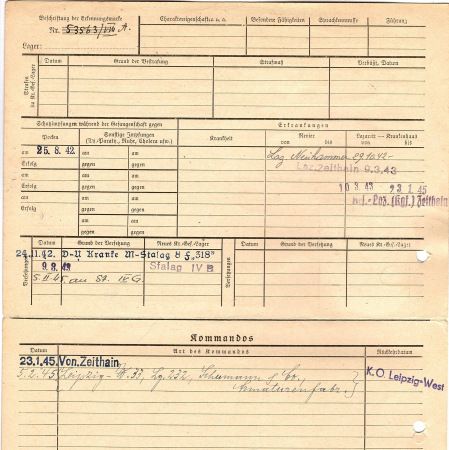 Beschriftung der Erkennungsmarke
Nr. 53563/VIII A.
Lager:
Charaktereigenschaften u. a.
Besondere Fähigkeiten
Sprachkenntnisse
Führung
Strafen im Kr.-Gef.-Lager
Datum
Grund der Bestrafung
Strafmaß
Verbüßt, Datum
Schutzimpfungen während der Gefangenschaft gegen
Erkrankungen
Pocken
Sonstige Impfungen
(Ty.-Paraty., Ruhr, Cholera usw.)
Krankheit
Revier
von bis
Lazarett — Krankenhaus
von bis
am 25. 8. 42.
am
am
Erfolg
gegen
gegen
am
am
am
Erfolg
gegen
gegen
am
am
am
Erfolg
gegen
gegen
am
am
gegen
gegen
am
am
gegen
gegen
Laz. Neuhammer 29.10.42-
Laz. Zeithain 9.3.43
10 3. 43 23 1. 45
Kgf.-Laz. (Kgf.) Zeithain
Versetzungen
Datum
Grund der Versetzung
Neues Kr.-Gef.-Lager
Versetzungen
Datum
Grund der Versetzung
Neues Kr.-Gef.-Lager
24.11.42. D-U Kranke M-Stalag 8 "318"
9. 3. 43
Stalag IV B
5.II.45. an St. IV G.
Kommandos
Datum
Art des Kommandos
Rückkehrdatum
23.1.45. Von. Zeithain
5.2.45 Leipzig- W. 33, Lg. 232, Schumann & Co.,
Armaturenfabr.
K.O. Leipzig-West